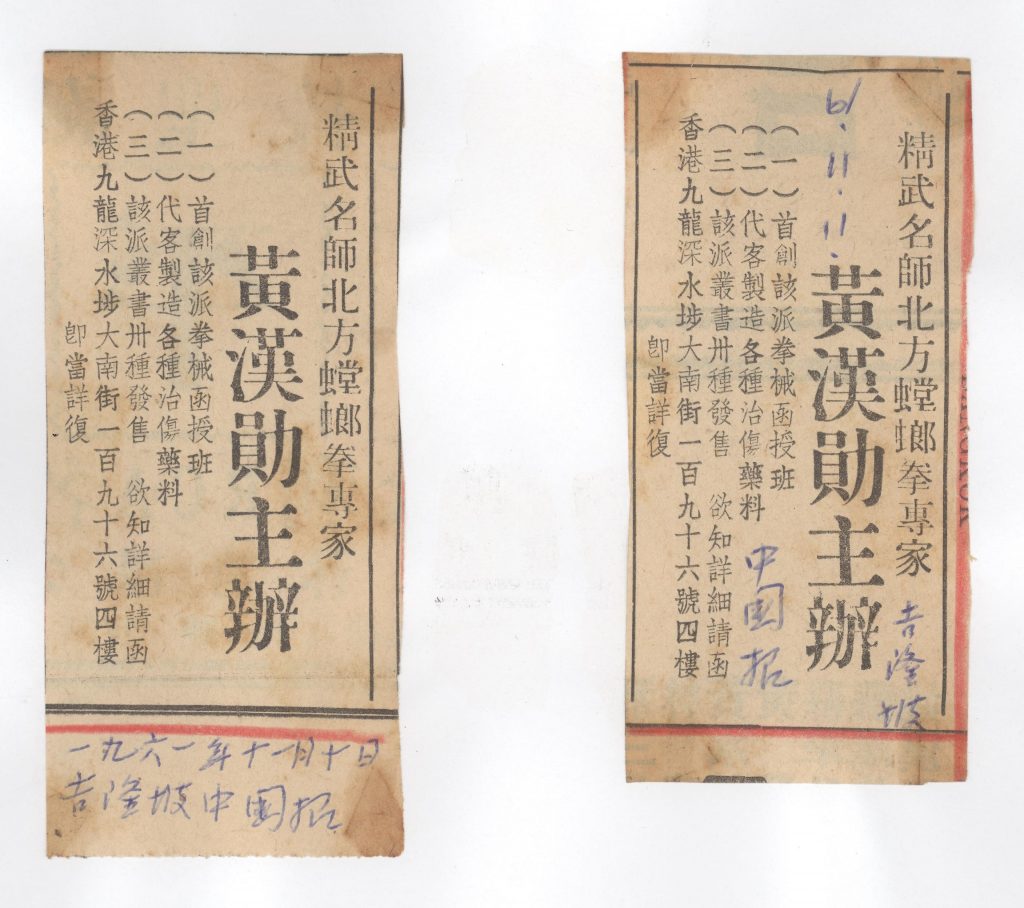 精武名師北方螳螂拳專家
黃漢勛主辦
（一）首創該派拳械函授班
（二）代客製造各種治傷藥料
（三）該派叢書卅種發售　欲知詳細請函
香港九龍深水埗大南街一百九十六號四樓
卽當詳復
一九六一年十一月十日
吉隆坡中國报
61.11.11.
精武名師北方螳螂拳專家
吉隆坡
黃漢勛主辦
（一）首創該派拳械函授班
（二）代客製造各種治傷藥料
中國报
（三）該派叢書卅種發售　欲知詳細請函
香港九龍深水埗大南街一百九十六號四樓
卽當詳復